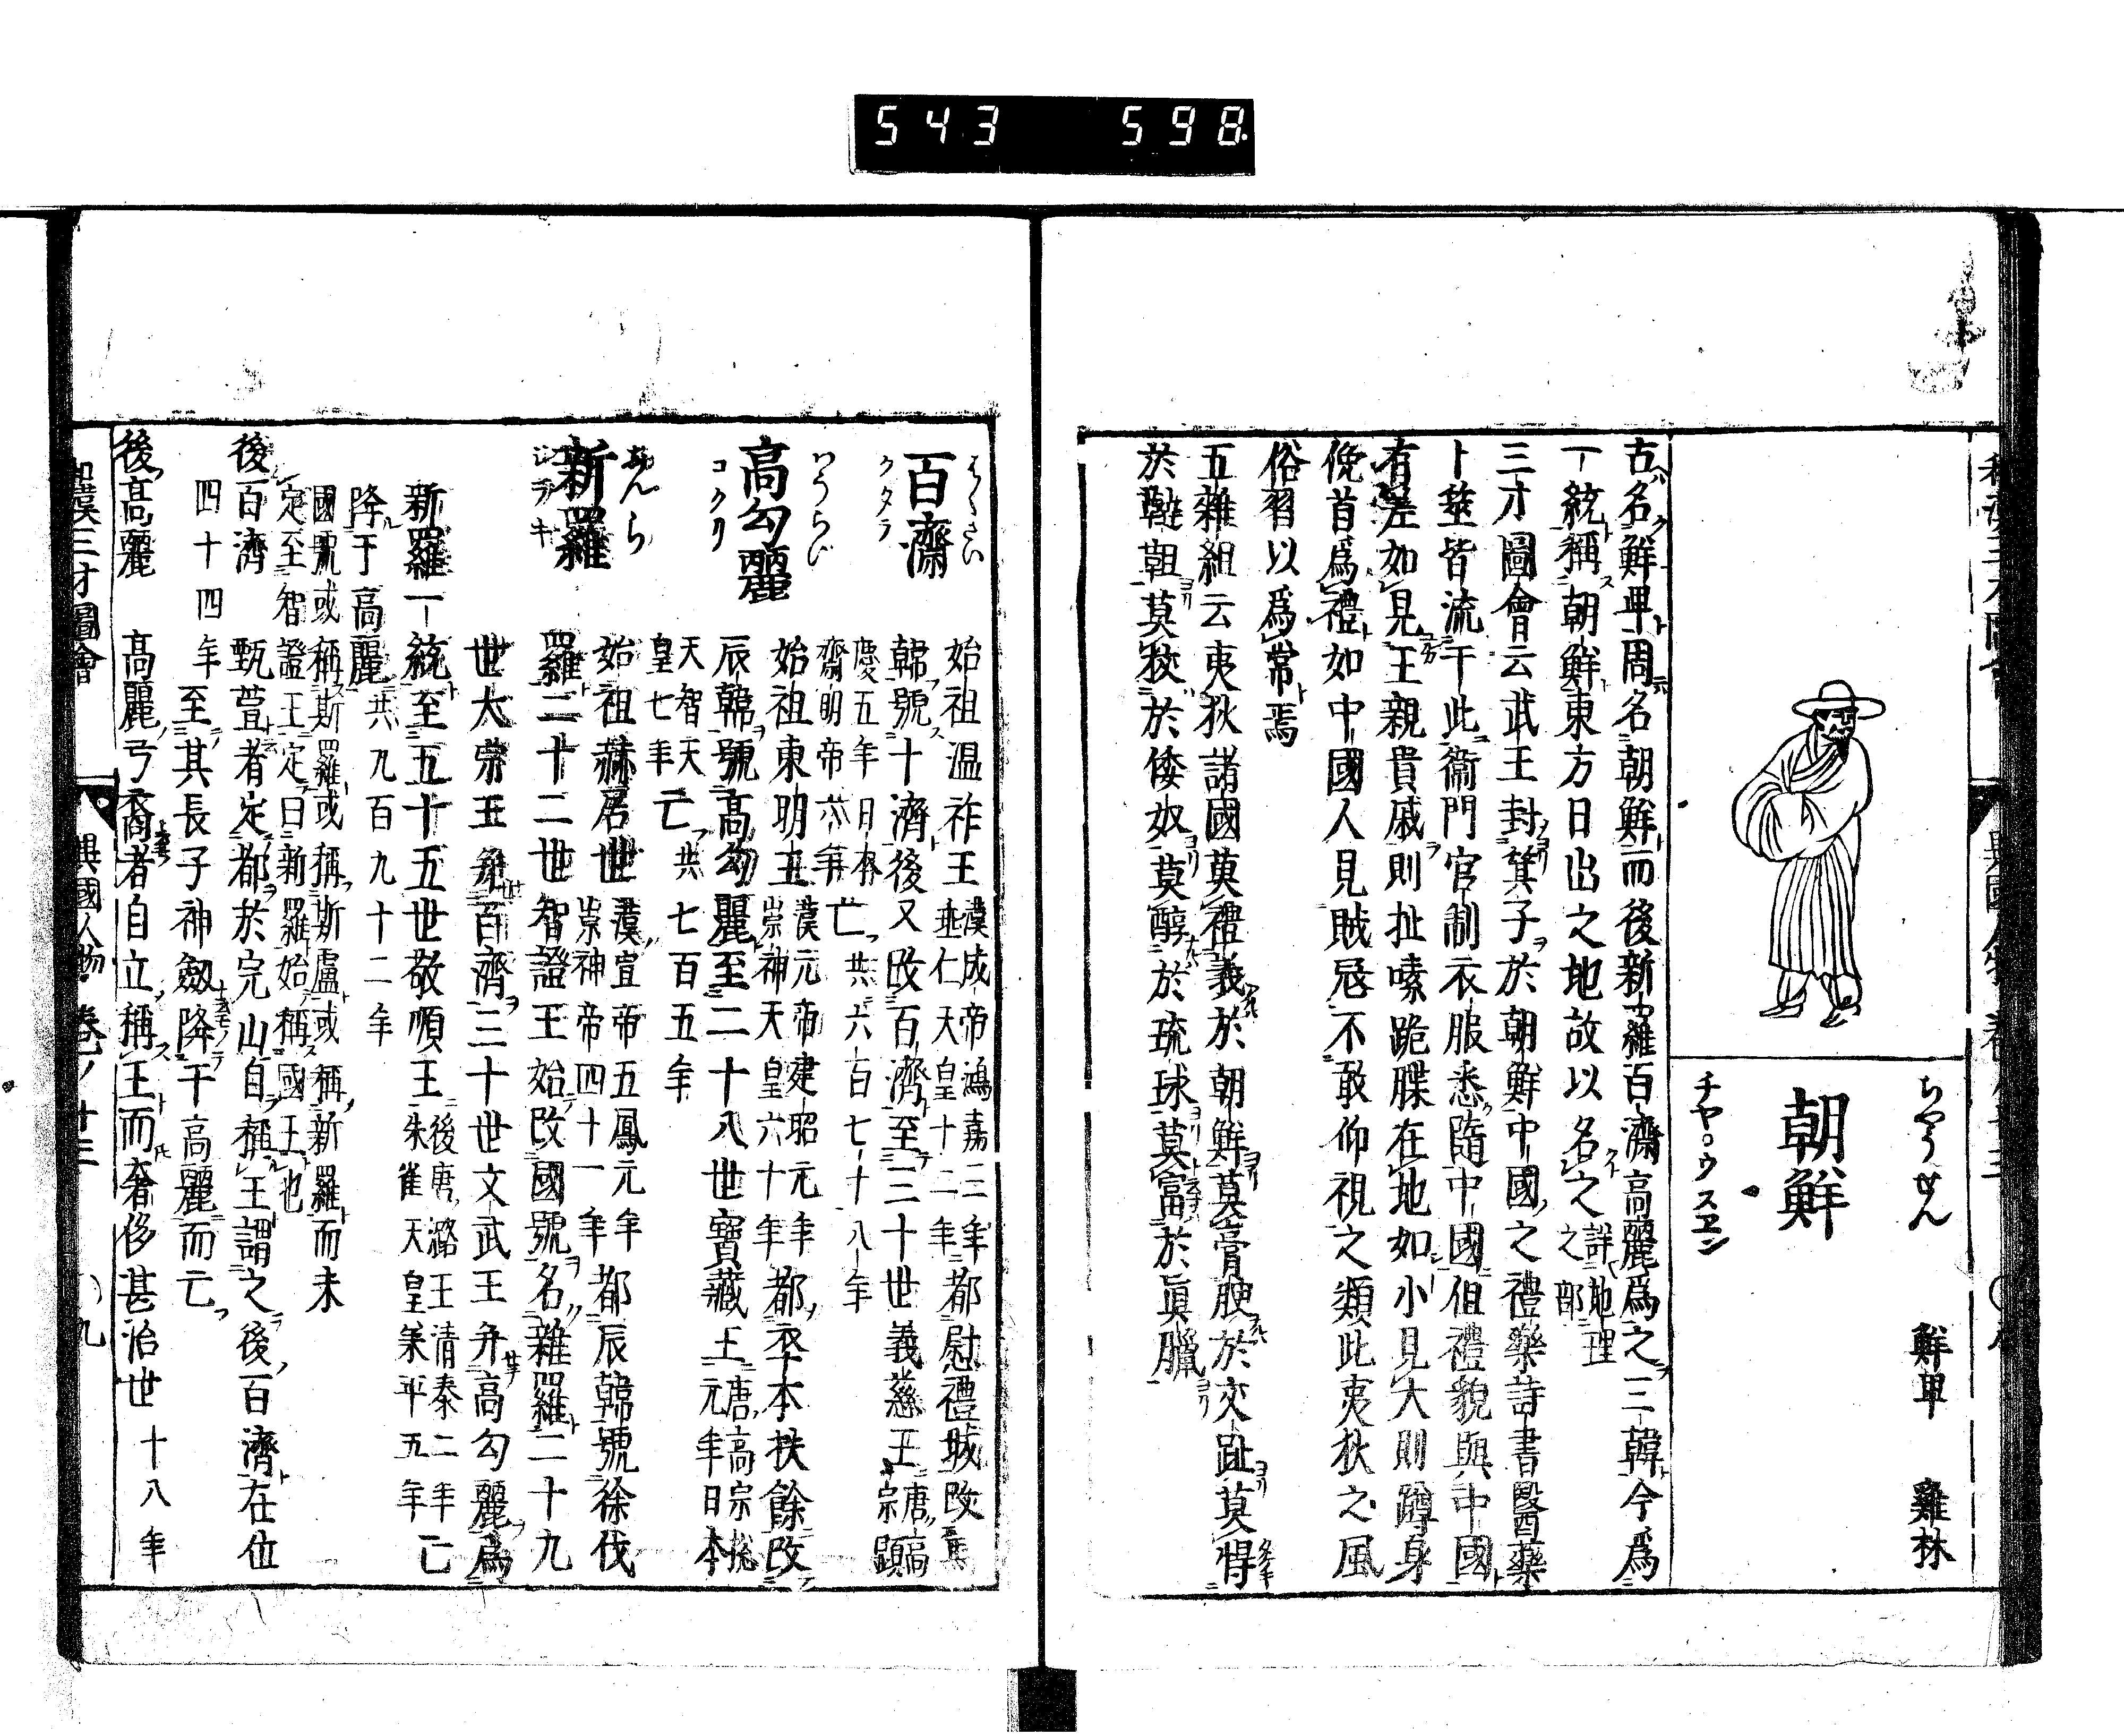 543 598
ちやうせん
鮮卑 雞林
朝鮮
チヤ゜ウスヱン
古名鮮卑周名朝鮮而後新羅百濟高麗爲之三韓今爲
一統稱朝鮮東方日出之地故以名之詳地理之部
三才圖會云武王封箕子於朝鮮中國之禮樂詩書醫藥
卜筮皆流于此衙門官制衣服悉隨中國但禮貌與中國
有差如見王親貴戚則扯嗉跪膝在地如小見大則蹲身
俛首爲禮如中國人見賊忌不敢仰視之類此夷狄之風
俗習以爲常焉
五雜組云夷狄諸國莫禮義於朝鮮莫膏腴於交趾莫悍
於韃靼莫狡於倭奴莫醇於琉球莫富於眞臘
百濟
クタラ
始祖温祚王漢成帝鴻嘉三年垂仁天皇十二年都慰禮城改
韓號十濟後又改百濟至三十世義慈王唐高宗顯
慶五年日本齊明帝六年亡共六百七十八年
高勾麗
コクリ
始祖東明王漢元帝建昭元年崇神天皇六十年都卒本扶餘改
辰韓號高勾麗至二十八世寶藏王唐高宗摠元年日本
天智天皇七年亡共七百五年
新羅
シラキ
始祖赫居世漢宣帝五鳳元年崇神帝四十一年都辰韓號徐伐
羅二十二世智證王始改國號名雞羅二十九
世太宗王幷百濟三十世文武王幷高勾麗爲
新羅一統至五十五世敬順王後唐潞王清泰二年朱雀天皇承平五年亡
降于高麗共九百九十二年
國號或稱斯羅或稱斯盧或稱新羅而未
定至智證王定曰新羅始稱國王也
後百濟
甄萱者定都於完山自稱王謂之後百濟在位
四十四年至其長子神劔降于高麗而亡
後高麗
高麗弓裔者自立稱王而奢侈甚治世十八年
和漢三才圖會
異國人物 卷ノ十三
九